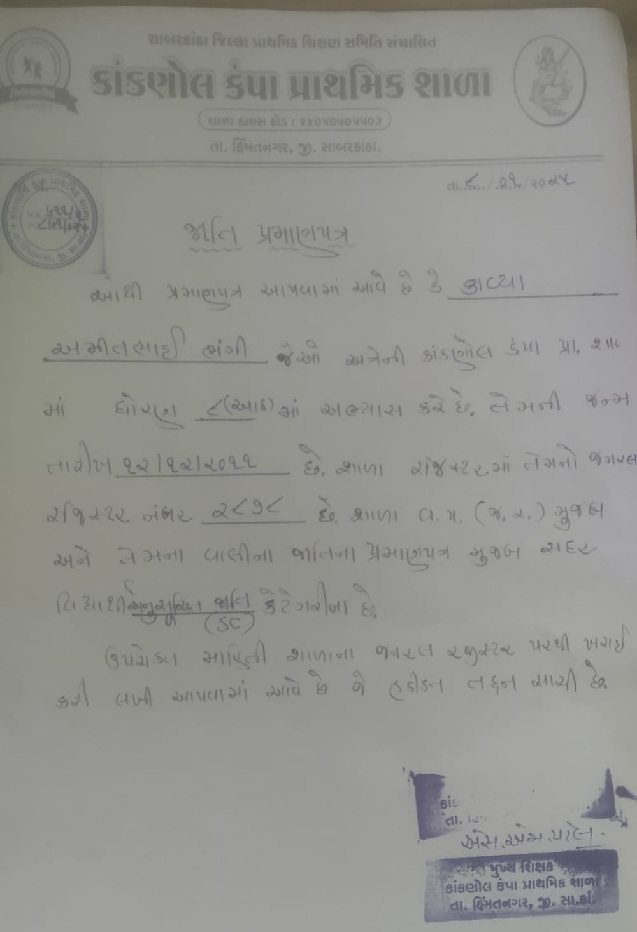 સાબરકાંઠા જિલ્લા પ્રાથમિક શિક્ષણ સમિતિ સંચાલિત
કાંકણોલ કંપા પ્રાથમિક શાળા
શાળા ડાયસ કોડ : ૨૪૦૫૦૭૦૫૫૦૩
તા. હિંમતનગર, જી. સાબરકાંઠા.
જાતિ પ્રમાણપત્ર
આથી પ્રમાણપત્ર આપવામાં આવે છે કે કાવ્યા
અમીતભાઈ ભંગી જેઓ અત્રેની કાંકણોલ કંપા પ્રા. શાળા
માં ધોરણ ૮(આઠ)માં અભ્યાસ કરે છે. તેમની જન્મ
તારીખ ૧૨/૧૨/૨૦૧૧ છે. શાળા રજિસ્ટરમાં તેમનો જનરલ
રજિસ્ટર નંબર ૨૮૭૮ છે. શાળા વ.પ. (જ.ર.) મુજબ
અને તેમના વાલીના જાતિના પ્રમાણપત્ર મુજબ સદર
વિદ્યાર્થી અનુસૂચિત જાતિ કેટેગરીના છે.
(SC)
ઉપરોક્ત માહિતી શાળાના જનરલ રજીસ્ટર પરથી ખરાઈ
કરી લખી આપવામાં આવે છે જે હકીકત તદ્દન સાચી છે.
એસ.એમ.પટેલ
મુખ્ય શિક્ષક
કાંકણોલ કંપા પ્રાથમિક શાળા
તા. હિંમતનગર, જી. સા.કાં.